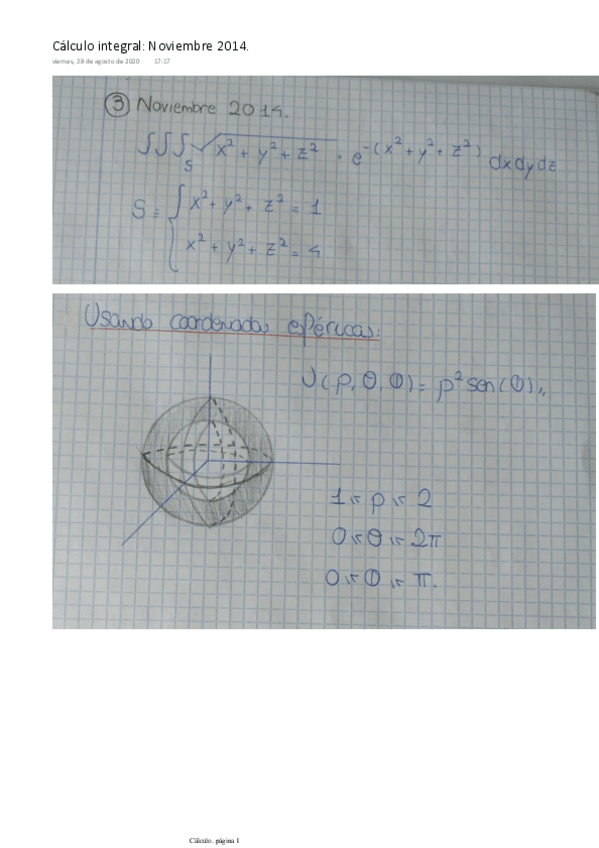 Cálculo integral: Noviembre 2014.
viernes, 28 de agosto de 2020 17:17
③ Noviembre 2014.
∫∫∫_S √(x² + y² + z²) · e^-(x² + y² + z²) dx dy dz
S = { x² + y² + z² = 1
x² + y² + z² = 4
Usando coordenadas esféricas:
J(ρ, θ, Φ) = ρ² sen(Φ),,
1 ≤ ρ ≤ 2
0 ≤ θ ≤ 2π
0 ≤ Φ ≤ π.
Cálculo. página 1